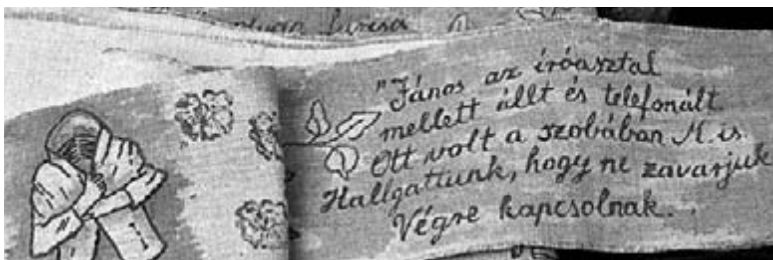 luisa
"János az íróasztal
mellett állt és telefonált.
Ott volt a szobában M. is.
Hallgattunk, hogy ne zavarjuk
Végre kapcsolnak.